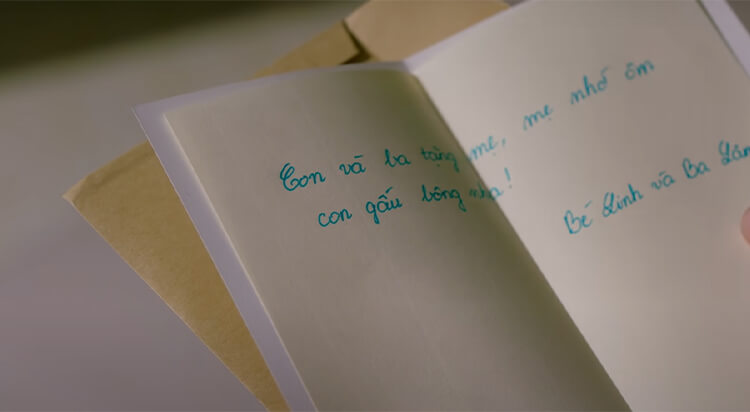 Con và ba tặng mẹ, mẹ nhớ ôm
con gấu bông nha!
Bé Linh và Ba